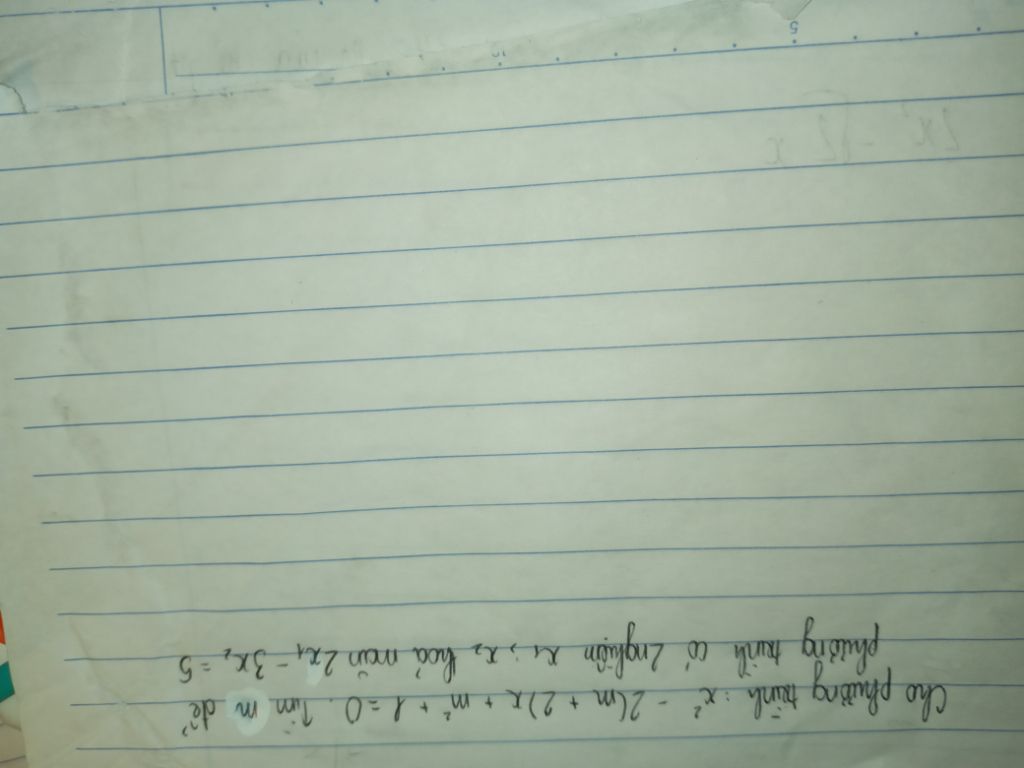 Cho phương trình: x² - 2(m + 2)x + m² + 1 = 0. Tìm m để
phương trình có 2 nghiệm x₁; x₂ thỏa mãn 2x₁ - 3x₂ = 5
2x² - √2 x
5
10